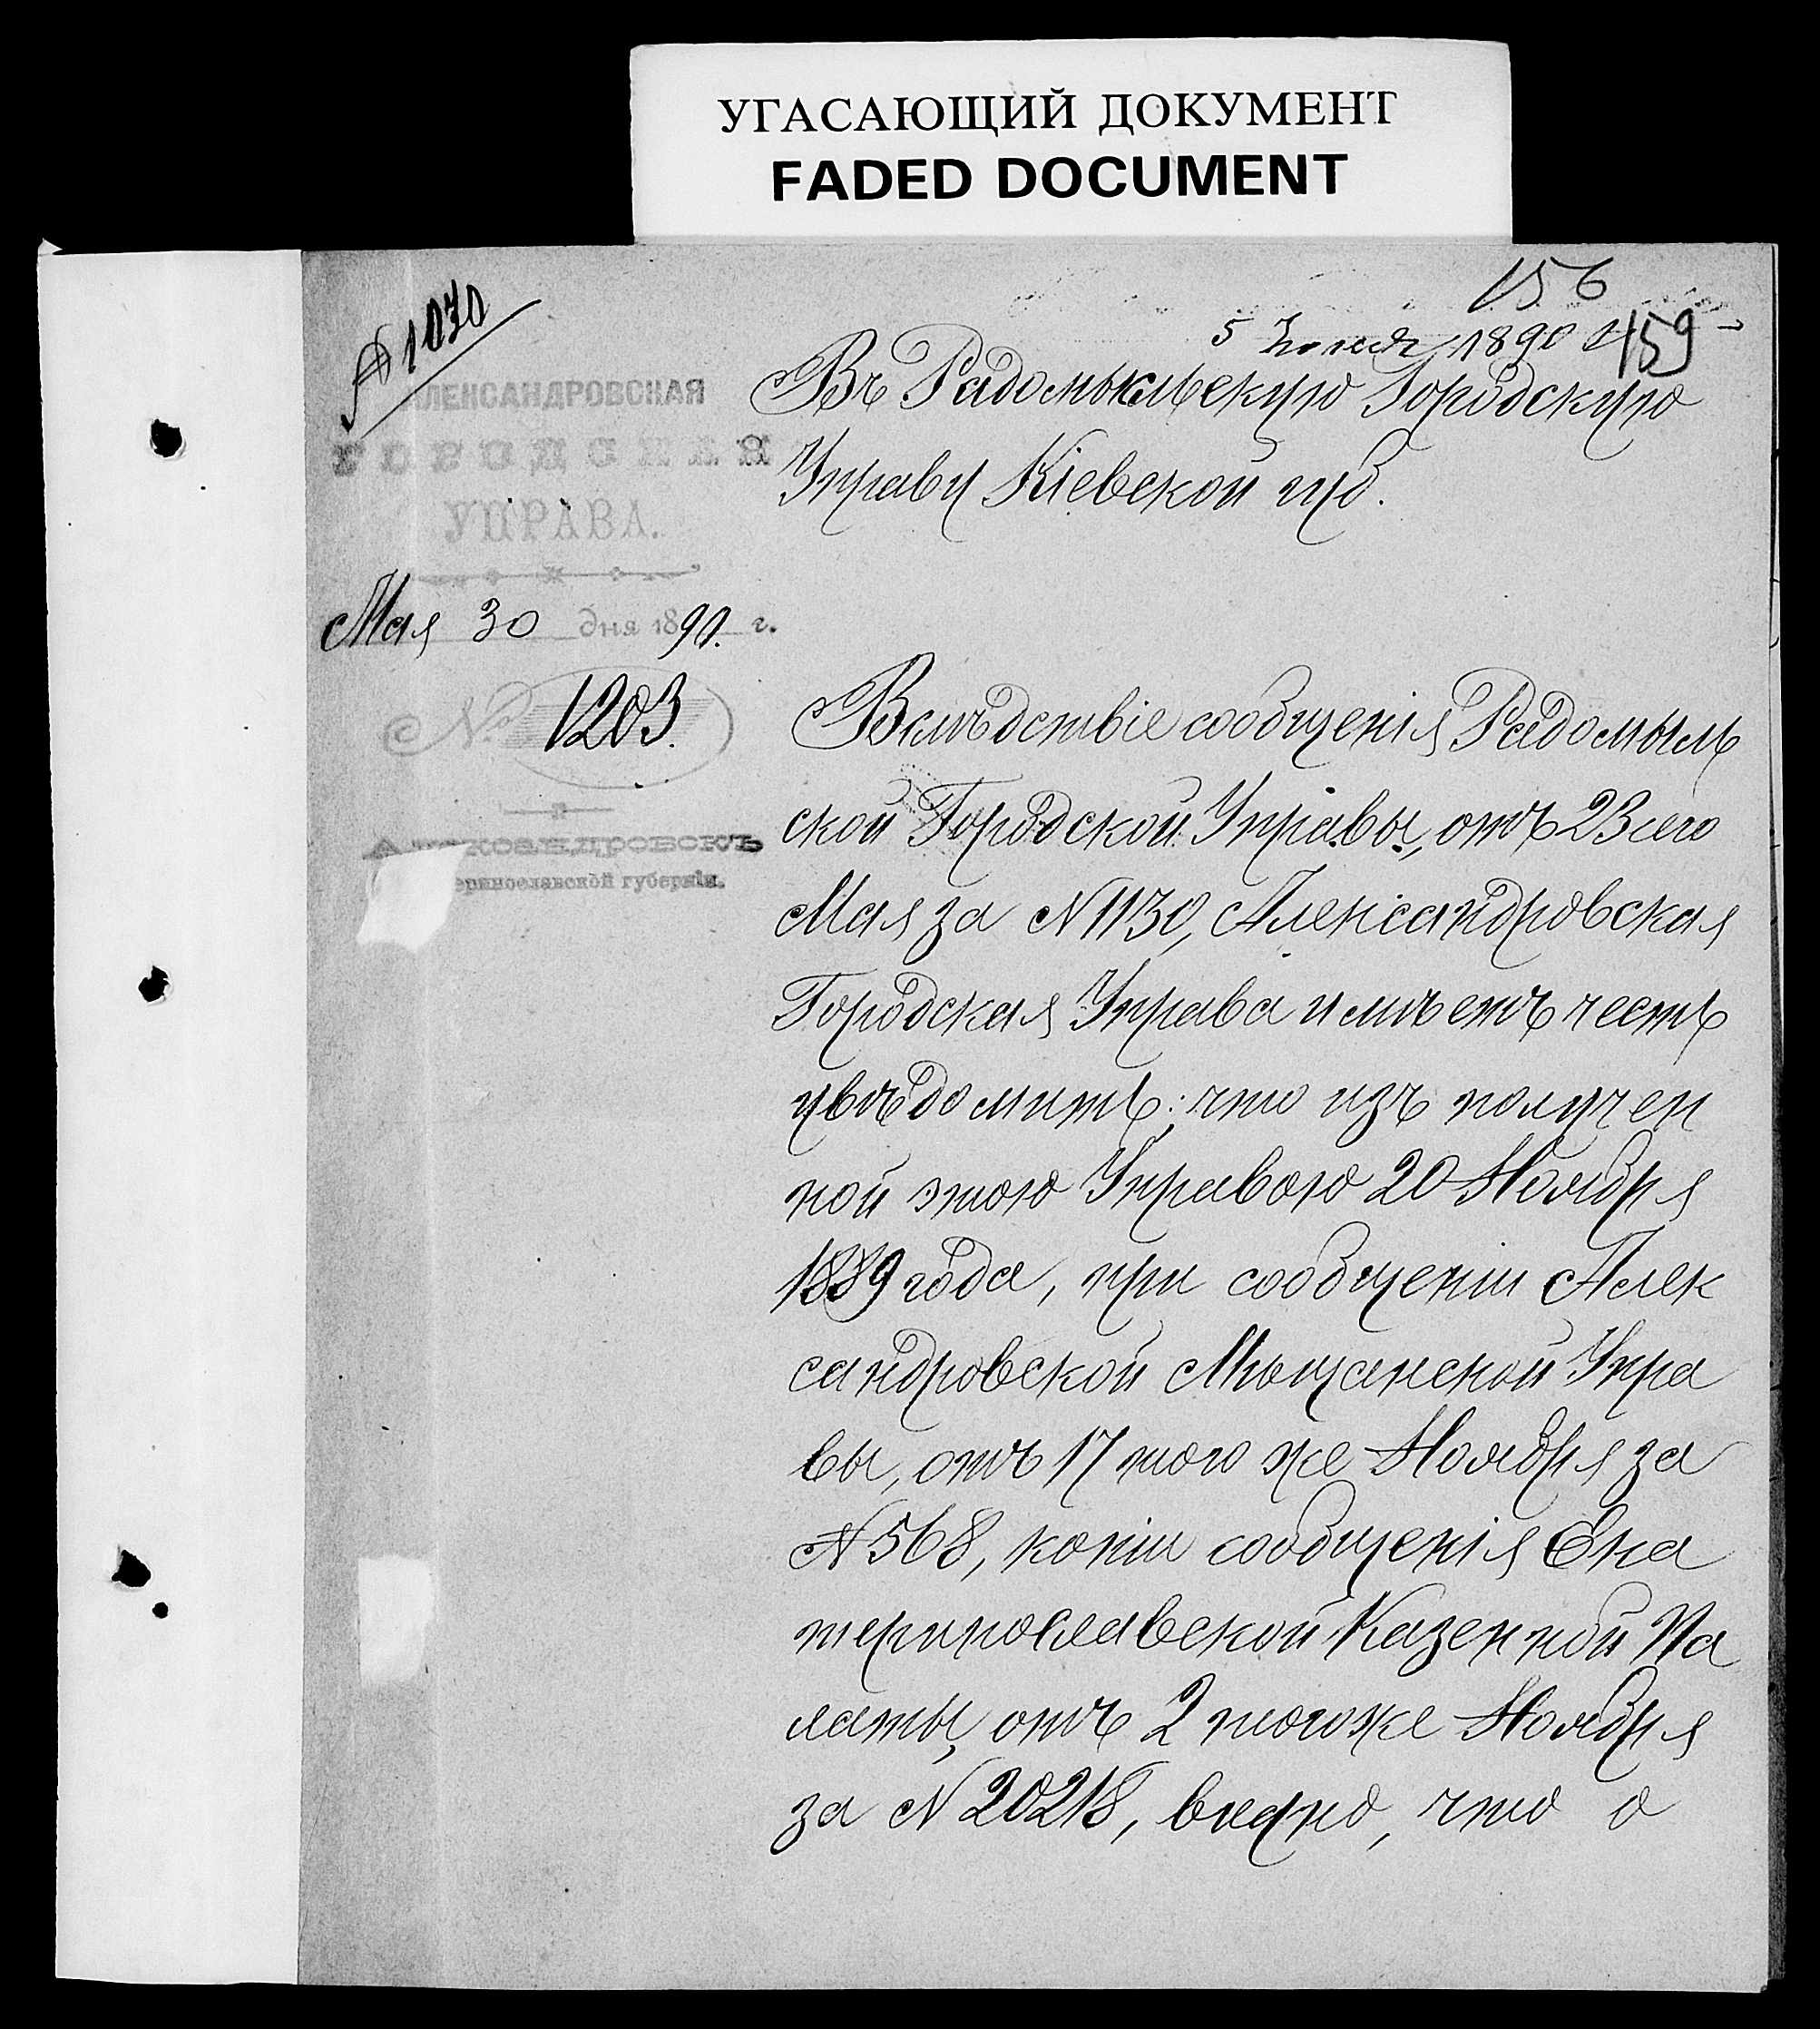 УГАСАЮЩИЙ ДОКУМЕНТ
FADED DOCUMENT
156
159
5 Июня 1890
№ 1070
АЛЕКСАНДРОВСКАЯ
ГОРОДСКАЯ
УПРАВА.
Мая 30 дня 1890. г.
№ 1203.
Александровскъ
Екатеринославской губерніи.
Въ Радомысльскую Городскую
Управу Кіевской губ.
Вслѣдствіе сообщенія Радомысль
ской Городской Управы, отъ 23 сего
Мая за N 1130, Александровская
Городская Управа имѣетъ честь
увѣдомить: что изъ получен
ной этою Управою 20 Ноября
1889 года, при сообщеніи Алек
сандровской Мѣщанской Упра
вы, отъ 17 того же Ноября за
N 568, копіи сообщенія Ека
теринославской Казенной Па
латы, отъ 2 того же Ноября
за N 20218, видно, что о